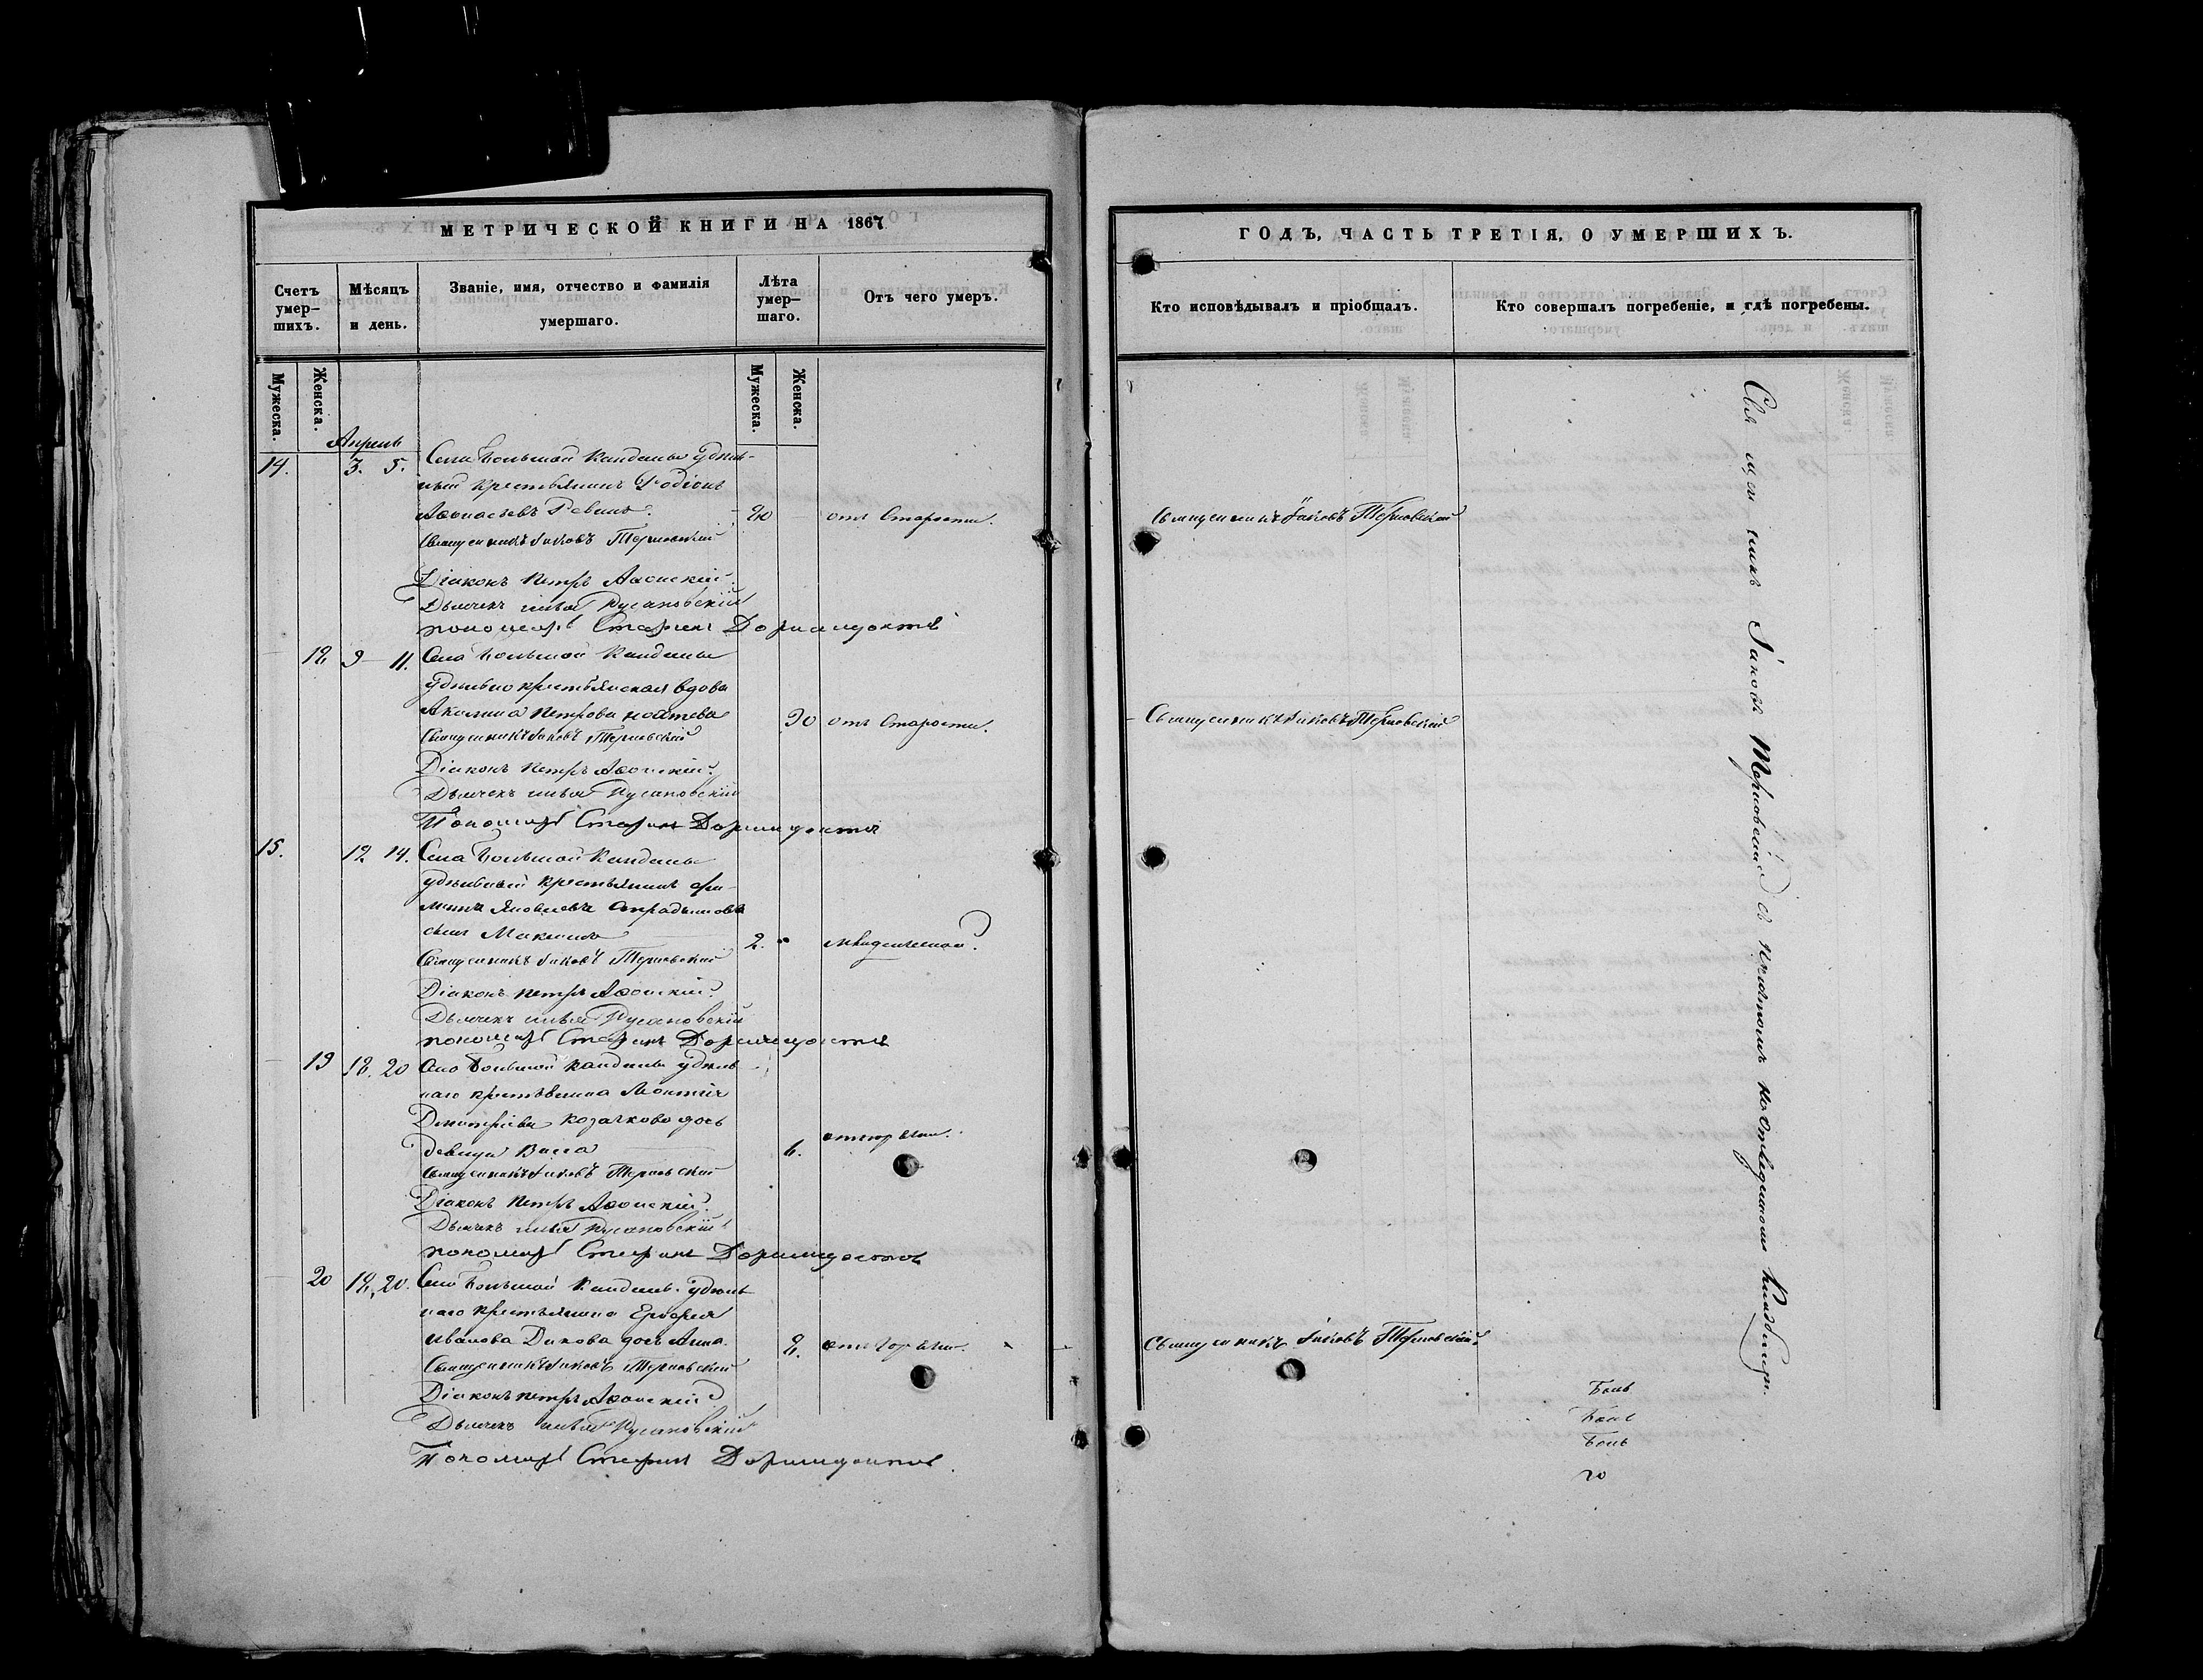 МЕТРИЧЕСКОЙ КНИГИ НА 1867
Счетъ умер-шихъ.
Мѣсяцъ и день.
Званіе, имя, отчество и фамилія умершаго.
Лѣта умер-шаго.
Отъ чего умеръ.
Мужеска.
Женска.
Мужеска.
Женска.
Апрель
14. 3. 5. Села Большой Кандалы удѣль-
ный крестьянинъ Родіонъ
Аѳонасьевъ Ревинъ. 80 отъ Старости.
Священникъ Іаковъ Терновскій
Діаконъ Петръ Аѳонскій.
Дьячекъ Илья Русановскій
пономарь Стефанъ Доримедонтовъ
18 9 11. Села Большой Кандалы
удѣльно крестьянская вдова
Акилина Петрова 90 отъ Старости.
Священникъ Іаковъ Терновскій
Діаконъ Петръ Аѳонскій.
Дьячекъ Илья Русановскій
Пономарь Стефанъ Доримедонтовъ
15. 12 14. Села Большой Кандалы
удѣльный крестьянинъ
Яковлевъ
сынъ Максимъ 2.
Священникъ Іаковъ Терновскій
Діаконъ Петръ Аѳонскій.
Дьячекъ Илья Русановскій
пономарь Стефанъ Доримедонтовъ
19 18. 20 Села Большой Кандалы удѣль
наго крестьянина Леонтія
Дмитріева Козачкова дочь
девица Васса 6. отъ горячки.
Священникъ Іаковъ Терновскій
Діаконъ Петръ Аѳонскій.
Дьячекъ Илья Русановскій
пономарь Стефанъ Доримедонтовъ
20 18. 20. Села Большой Кандалы удѣль
наго крестьянина Ерофея
Иванова Дикова дочь Анна 8. отъ горячки.
Священникъ Іаковъ Терновскій
Діаконъ Петръ Аѳонскій
Дьячекъ Илья Русановскій
Пономарь Стефанъ Доримедонтовъ
ГОДЪ, ЧАСТЬ ТРЕТІЯ, О УМЕРШИХЪ.
Кто исповѣдывалъ и пріобщалъ.
Кто совершалъ погребеніе, и гдѣ погребены.
Священникъ Іаковъ Терновскій
Священникъ Іаковъ Терновскій
Священникъ Іаковъ Терновскій
Свя щен никъ Іаковъ Терновскій съ причтомъ на отведенномъ кладбищѣ.